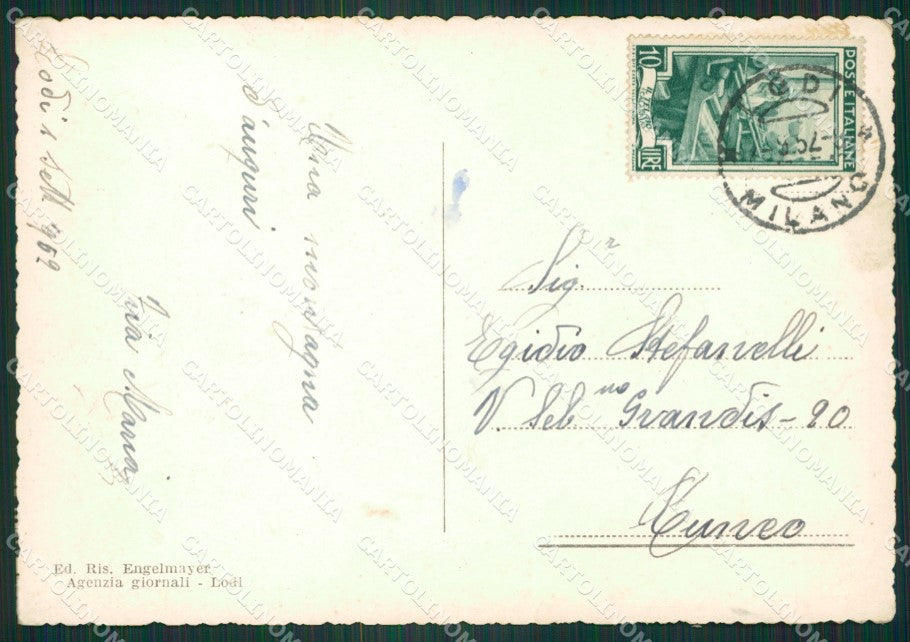 Lodi 1 Sett 962
Una montagna
d'auguri
Zia Maria
Ed. Ris. Engelmayer
Agenzia giornali - Lodi
10
LIRE
POSTE ITALIANE
LODI
MILANO
Sig.r
Egidio Stefanelli
V. Seb.no Grandis - 20
Cuneo
CARTOLINOMANIA